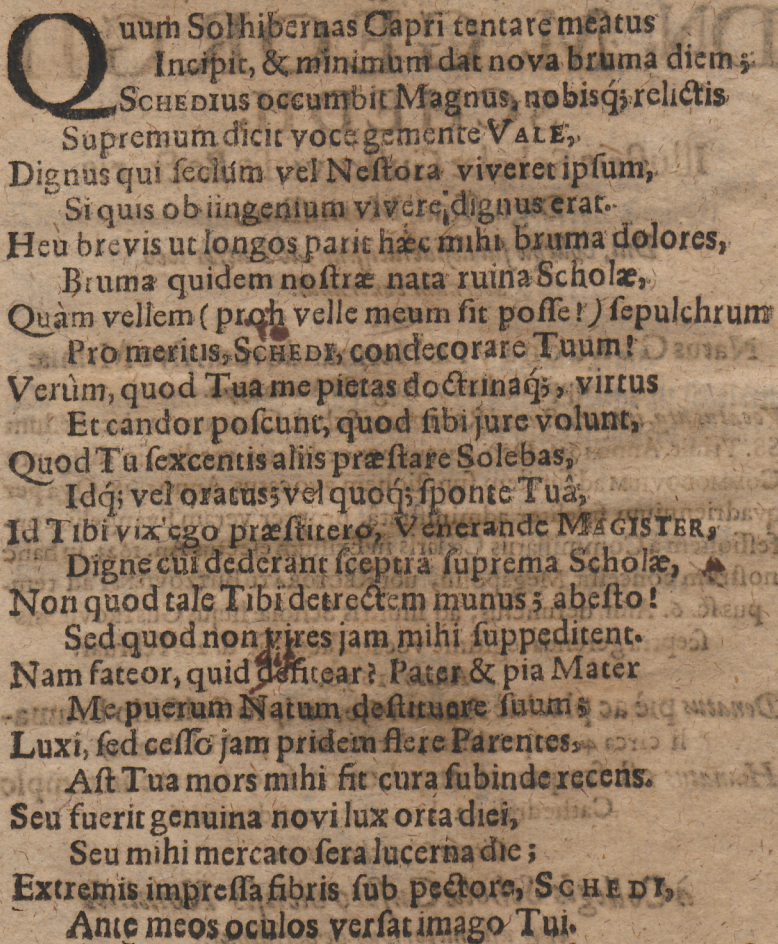 Quum Sol hibernas Capri tentare meatus
Incipit, & minimum dat nova bruma diem;
SCHEDIUS occumbit Magnus, nobisq́; relictis
Supremum dicit voce gemente VALE,
Dignus qui seclûm vel Nestora viveret ipsum,
Si quis ob iingenium vivere dignus erat.
Heu brevis ut longos parit hæc mihi bruma dolores,
Bruma quidem nostræ nata ruina Scholæ,
Quàm vellem (proh velle meum sit posse!) sepulchrum
Pro meritis, SCHEDI, condecorare Tuum!
Verùm, quod Tua me pietas doctrinaq́;, virtus
Et candor poscunt, quod sibi jure volunt,
Quod Tu sexcentis aliis præstare Solebas,
Idq́; vel oratus; vel quoq́; sponte Tuâ,
Id Tibi vix ego præstitero, Venerande MAGISTER,
Digne cui dederant sceptra suprema Scholæ,
Non quod tale Tibi detrectem munus; absto!
Sed quod non vires jam mihi suppeditent.
Nam fateor, quid defitear? Pater & pia Mater
Me puerum Natum destituere suum;
Luxi, sed cesso jam pridem flere Parentes,
Ast Tua mors mihi fit cura subinde recens.
Seu fuerit genuina novi lux orta diei,
Seu mihi mercato sera lucerna die;
Extremis impressa fibris sub pectore, SCHEDI,
Ante meos oculos versat imago Tui.